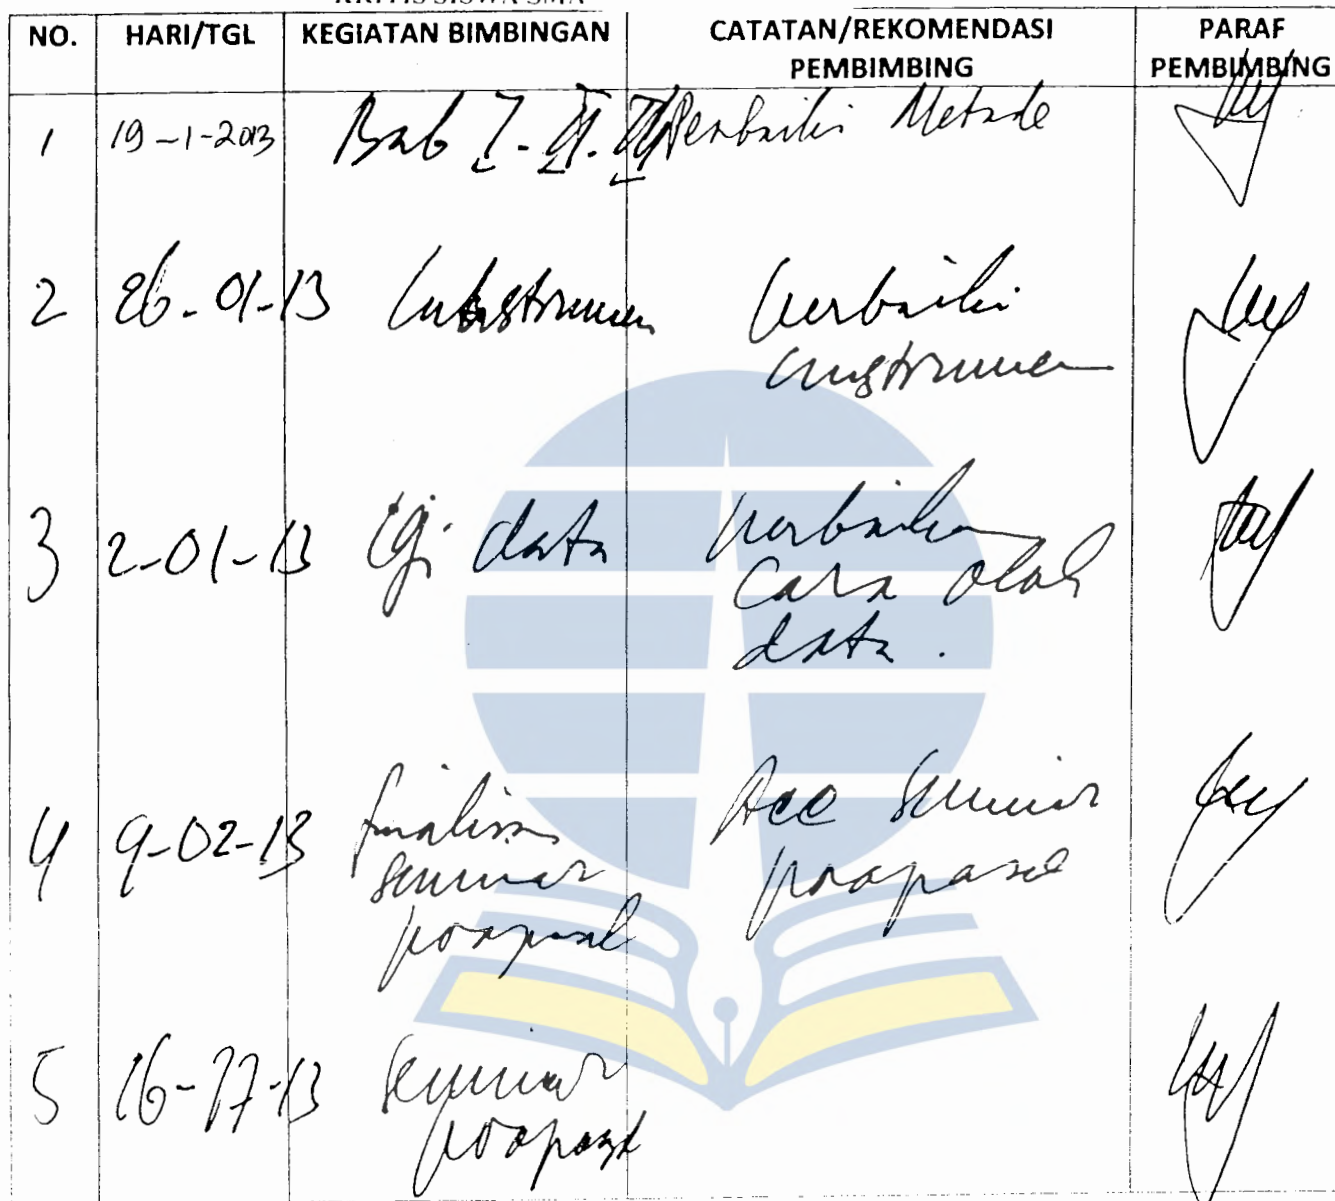 KRITIS SISWA SMA
NO. HARI/TGL KEGIATAN BIMBINGAN CATATAN/REKOMENDASI PEMBIMBING PARAF PEMBIMBING
1 19-1-2013 Bab I. II. III Perbaiki Metode
2 26-01-13 Instrumen perbaiki
instrumen
3 2-01-13 Uji data perbaiki
cara olah
data.
4 9-02-13 finalisasi Acc Seminar
seminar proposal
proposal
5 16-17-13 Seminar
proposal